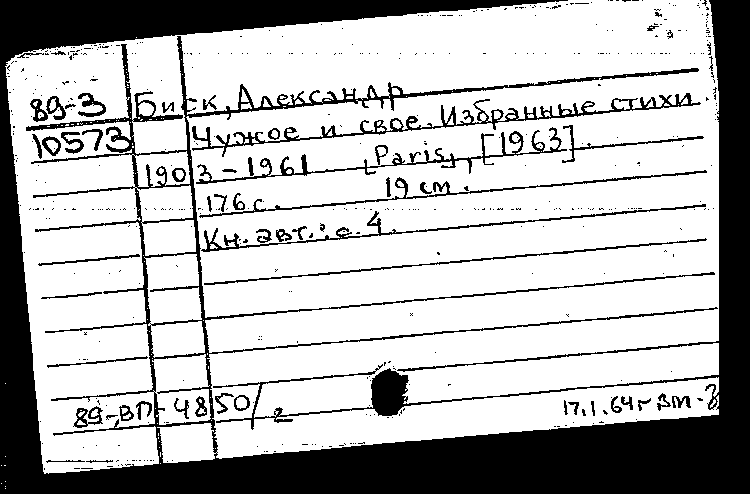 89-3 Биск, Александр
10573 Чужое и свое. Избранные стихи.
1903-1961 [Paris], [1963].
176 с. 19 см.
Кн. авт.: с. 4.
89-ВП-4850/2
17.1.64г